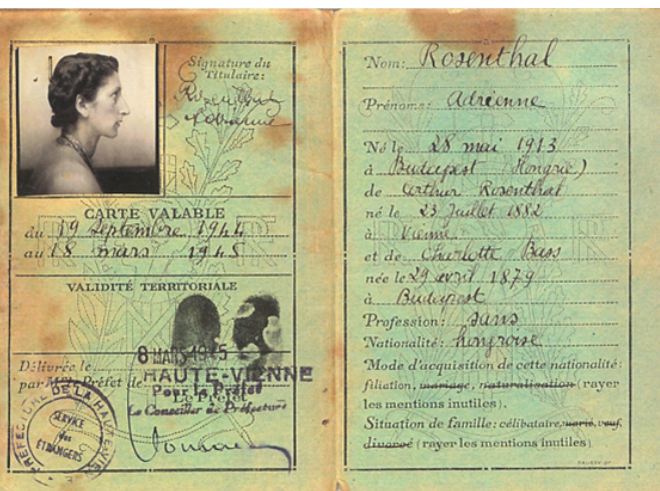 Signature du
Titulaire:
Rosenthal
Adrienne
CARTE VALABLE
du 19 Septembre 1944
au 18 mars 1945
VALIDITÉ TERRITORIALE
8 MARS 1945
Délivrée le
par M. le Préfet de
HAUTE-VIENNE
Pour le Préfet
Le Préfet
Le Conseiller de Préfecture
PRÉFECTURE DE LA HAUTE-VIENNE
SERVICE
des
ÉTRANGERS
Nom: Rosenthal
Prénoms: Adrienne
Né le 28 mai 1913
à Budapest Hongrie)
de Arthur Rosenthal
né le 23 Juillet 1882
à Vienne
et de Charlotte Bass
née le 29 avril 1879
à Budapest
Profession: sans
Nationalité: hongroise
Mode d'acquisition de cette nationalité:
filiation, mariage, naturalisation (rayer
les mentions inutiles).
Situation de famille: célibataire, marié, veuf,
divorcé (rayer les mentions inutiles).